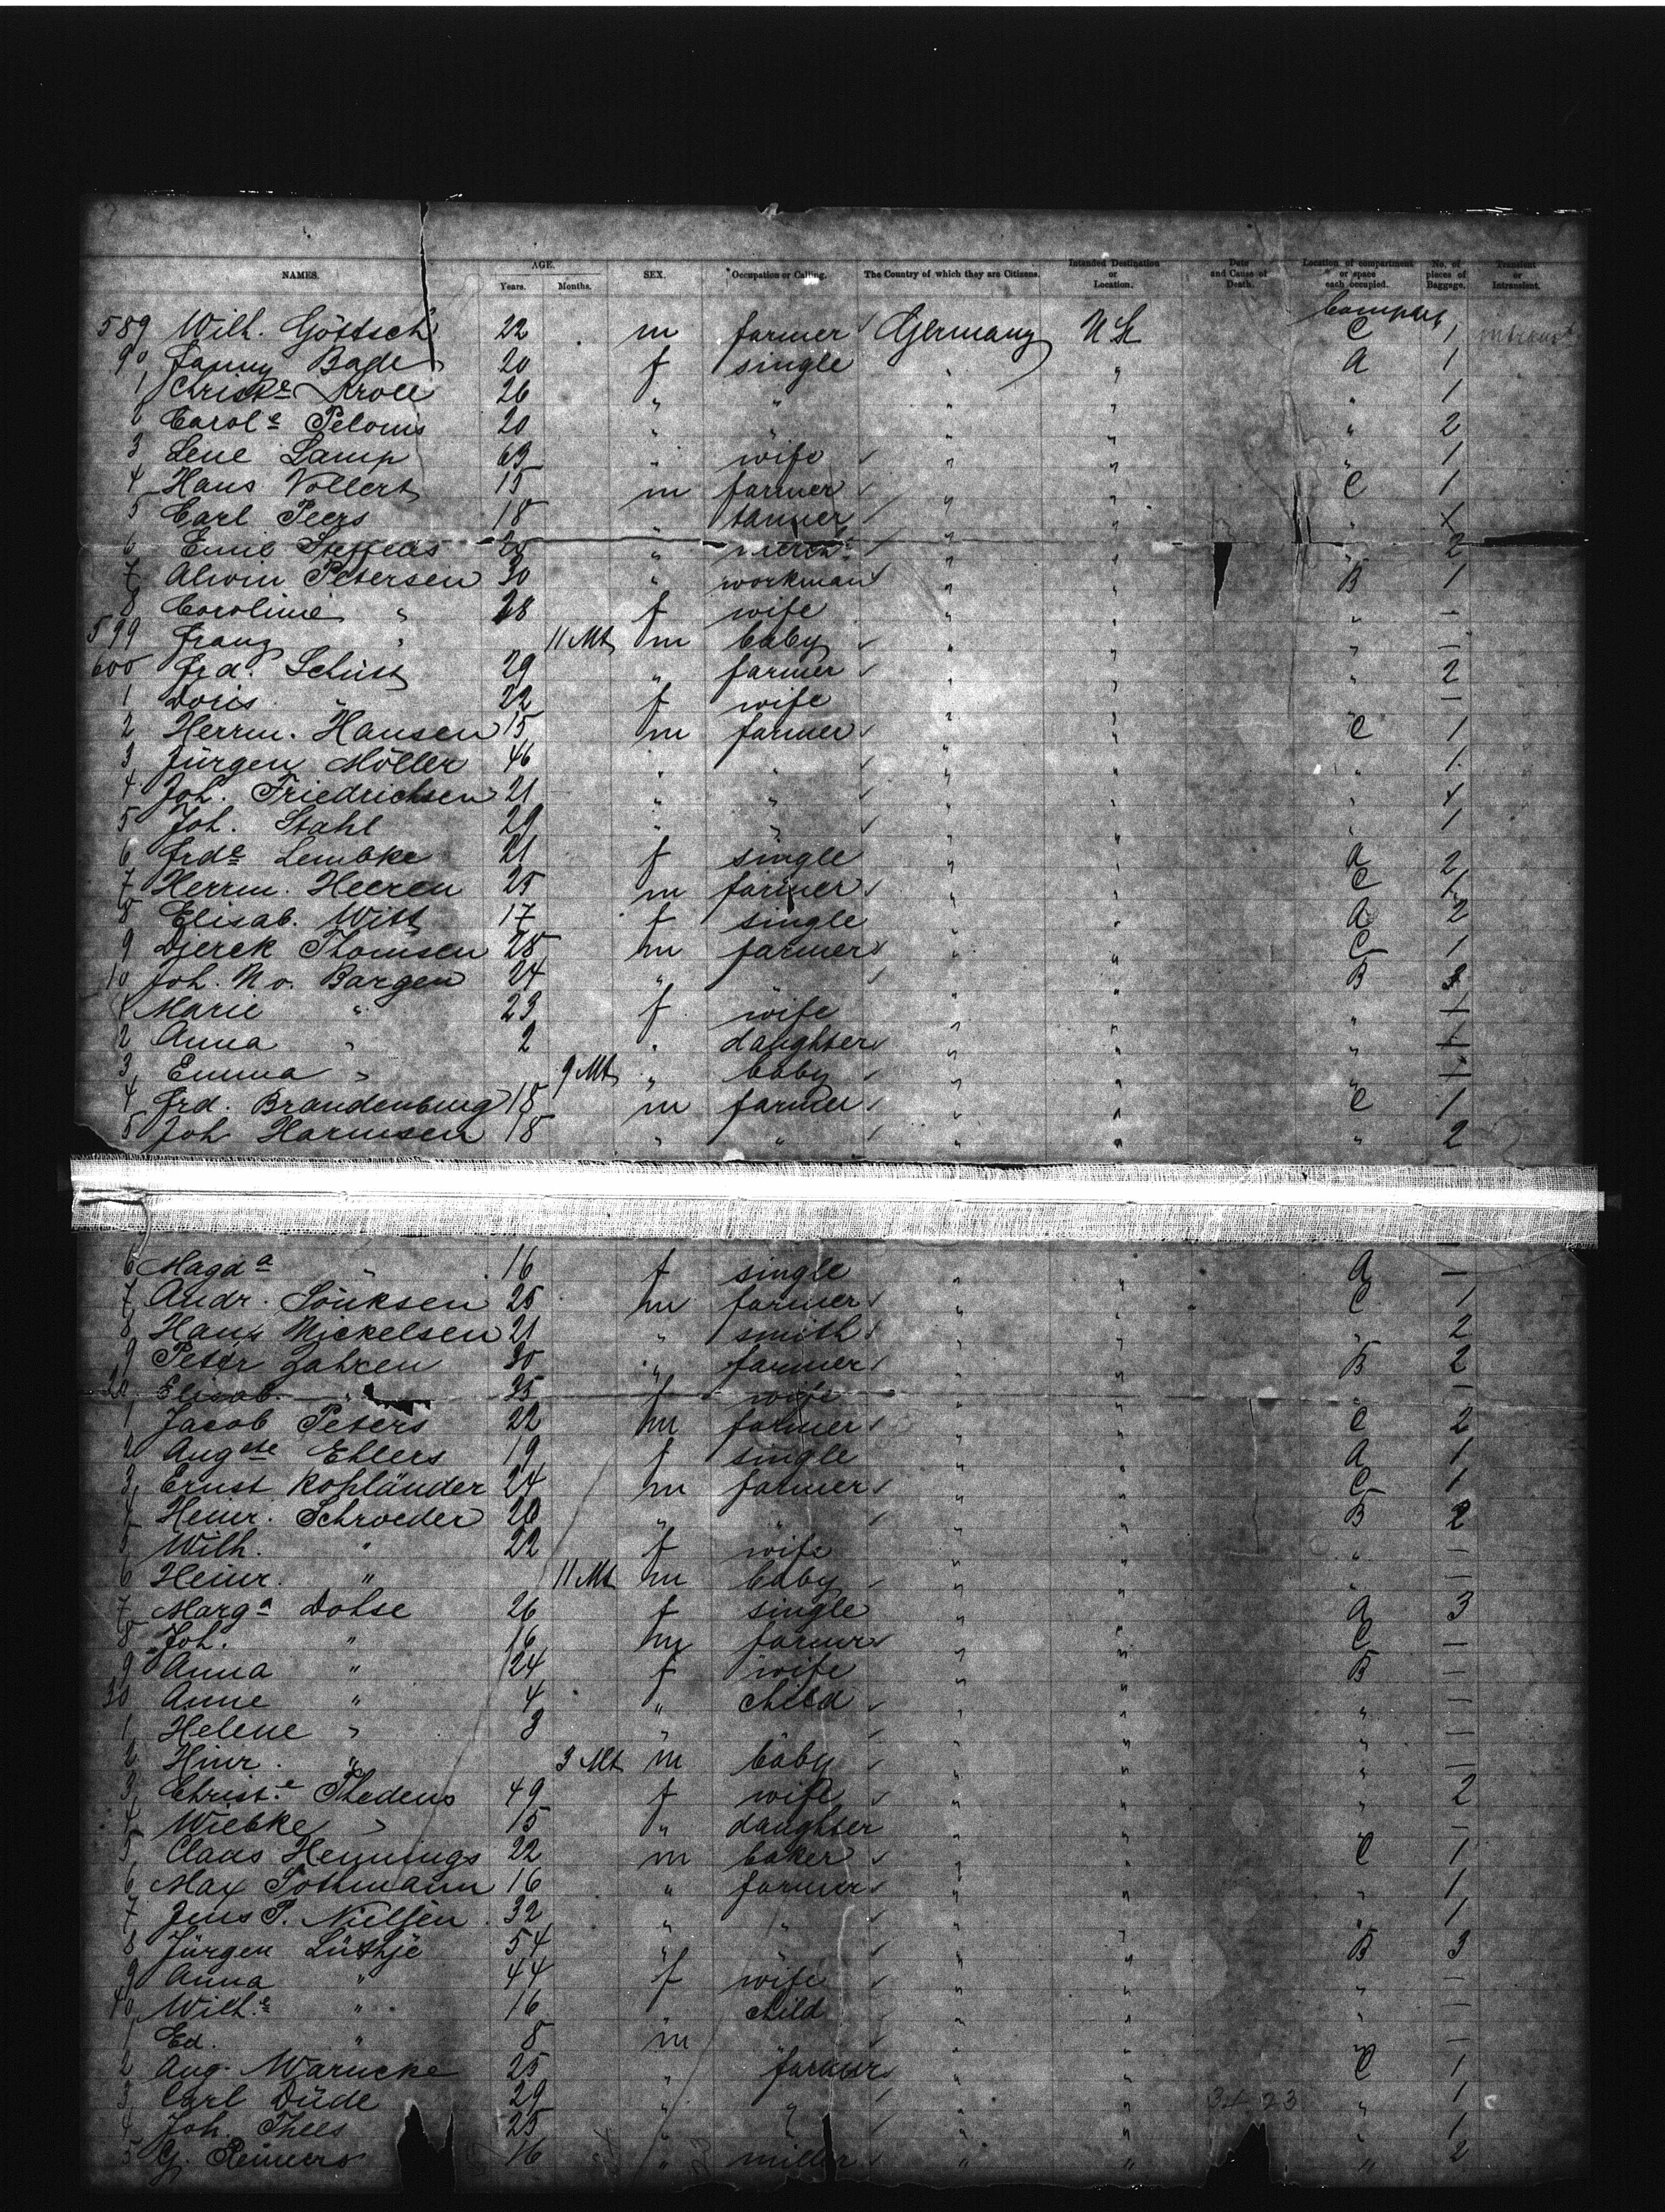 NAMES. AGE. Years. Months. SEX. Occupation or Calling. The Country of which they are Citizens. Intended Destination or Location. Date and Cause of Death. Location of compartment or space each occupied. No. of pieces of Baggage. Transient or Intransient.
589 Wilh. Göttsch 22 m farmer Germany U St C 1
90 Fanny Bade 20 f single " " A 1
1 Christe Kroll 26 " " " " " 1
2 Carole Peloms 20 " " " " " 2
3 Lene Lamp 63 " wife " " " 1
4 Hans Vollert 15 m farmer " " C 1
5 Carl Peers 18 " tanner " " " 1
6 Emil Steffens " " " " 2
7 Alwin Petersen 30 " workman " " B 1
8 Caroline " 28 f wife " " " —
599 Franz " 11 Mt m baby " " " —
600 Frd. Schütt 29 " farmer " " " 2
1 Doris " 22 f wife " " " —
2 Herrm. Hansen 15 m farmer " " C 1
3 Jürgen Möller 46 " " " " " 1
4 Joh. Friedrichsen 21 " " " " " 1
5 Joh. Stahl 29 " " " " " 1
6 Frde Lembke 21 f single " " A 2
7 Herrm. Heeren 25 m farmer " " C 1
8 Elisab. Witt 17 f single " " A 2
9 Djerck Thomsen 28 m farmer " " C 1
10 Joh. N v. Bargen 24 " " " " B 3
1 Marie " 23 f wife " " " —
2 Anna " 2 " daughter " " " —
3 Emma " 9 Mt " baby " " " —
4 Frd. Brandenburg 18 m farmer " " C 1
5 Joh Harmsen 18 " " " " " 2
6 Magda " 16 f single " " A —
7 Andr. Sönksen 25 m farmer " " C 1
8 Hans Nickelsen 21 " smith " " " 2
9 Peter Jahren 30 " farmer " " B 2
20 Elisab. " 35 f wife " " " —
1 Jacob Peters 22 m farmer " " C 2
2 Augste Ehlers 19 f single " " A 1
3 Ernst Kohländer 24 m farmer " " C 1
4 Heinr. Schroeder 26 " " " " B 2
5 Wilh. " 22 f wife " " " —
6 Heinr. " 11 Mt m baby " " " —
7 Marga Dohse 26 f single " " A 3
8 Joh. " 16 m farmer " " C —
9 Anna " 24 f wife " " B —
30 Anne " 4 " child " " " —
1 Helene " 3 " " " " —
2 Hinr. " 3 Mt m baby " " " —
3 Christ.e Thedens 49 f wife " " " 2
4 Wiebke " 15 " daughter " " " —
5 Claus Hennings 22 m baker " " C 1
6 Max Sothmann 16 " farmer " " " 1
7 Jens P. Nielsen 32 " " " " " 1
8 Jürgen Lüthje 54 " " " B 3
9 Anna " 44 f wife " " " —
40 Wilh.e " 16 " child " " " —
1 Ed. " 8 m " " " —
2 Aug. Warncke 25 " farmer " " C 1
3 Carl Düde 29 " " " " " 1
4 Joh. Thees 25 " " " " " 1
5 G. Reimers 16 " miller " " " 2